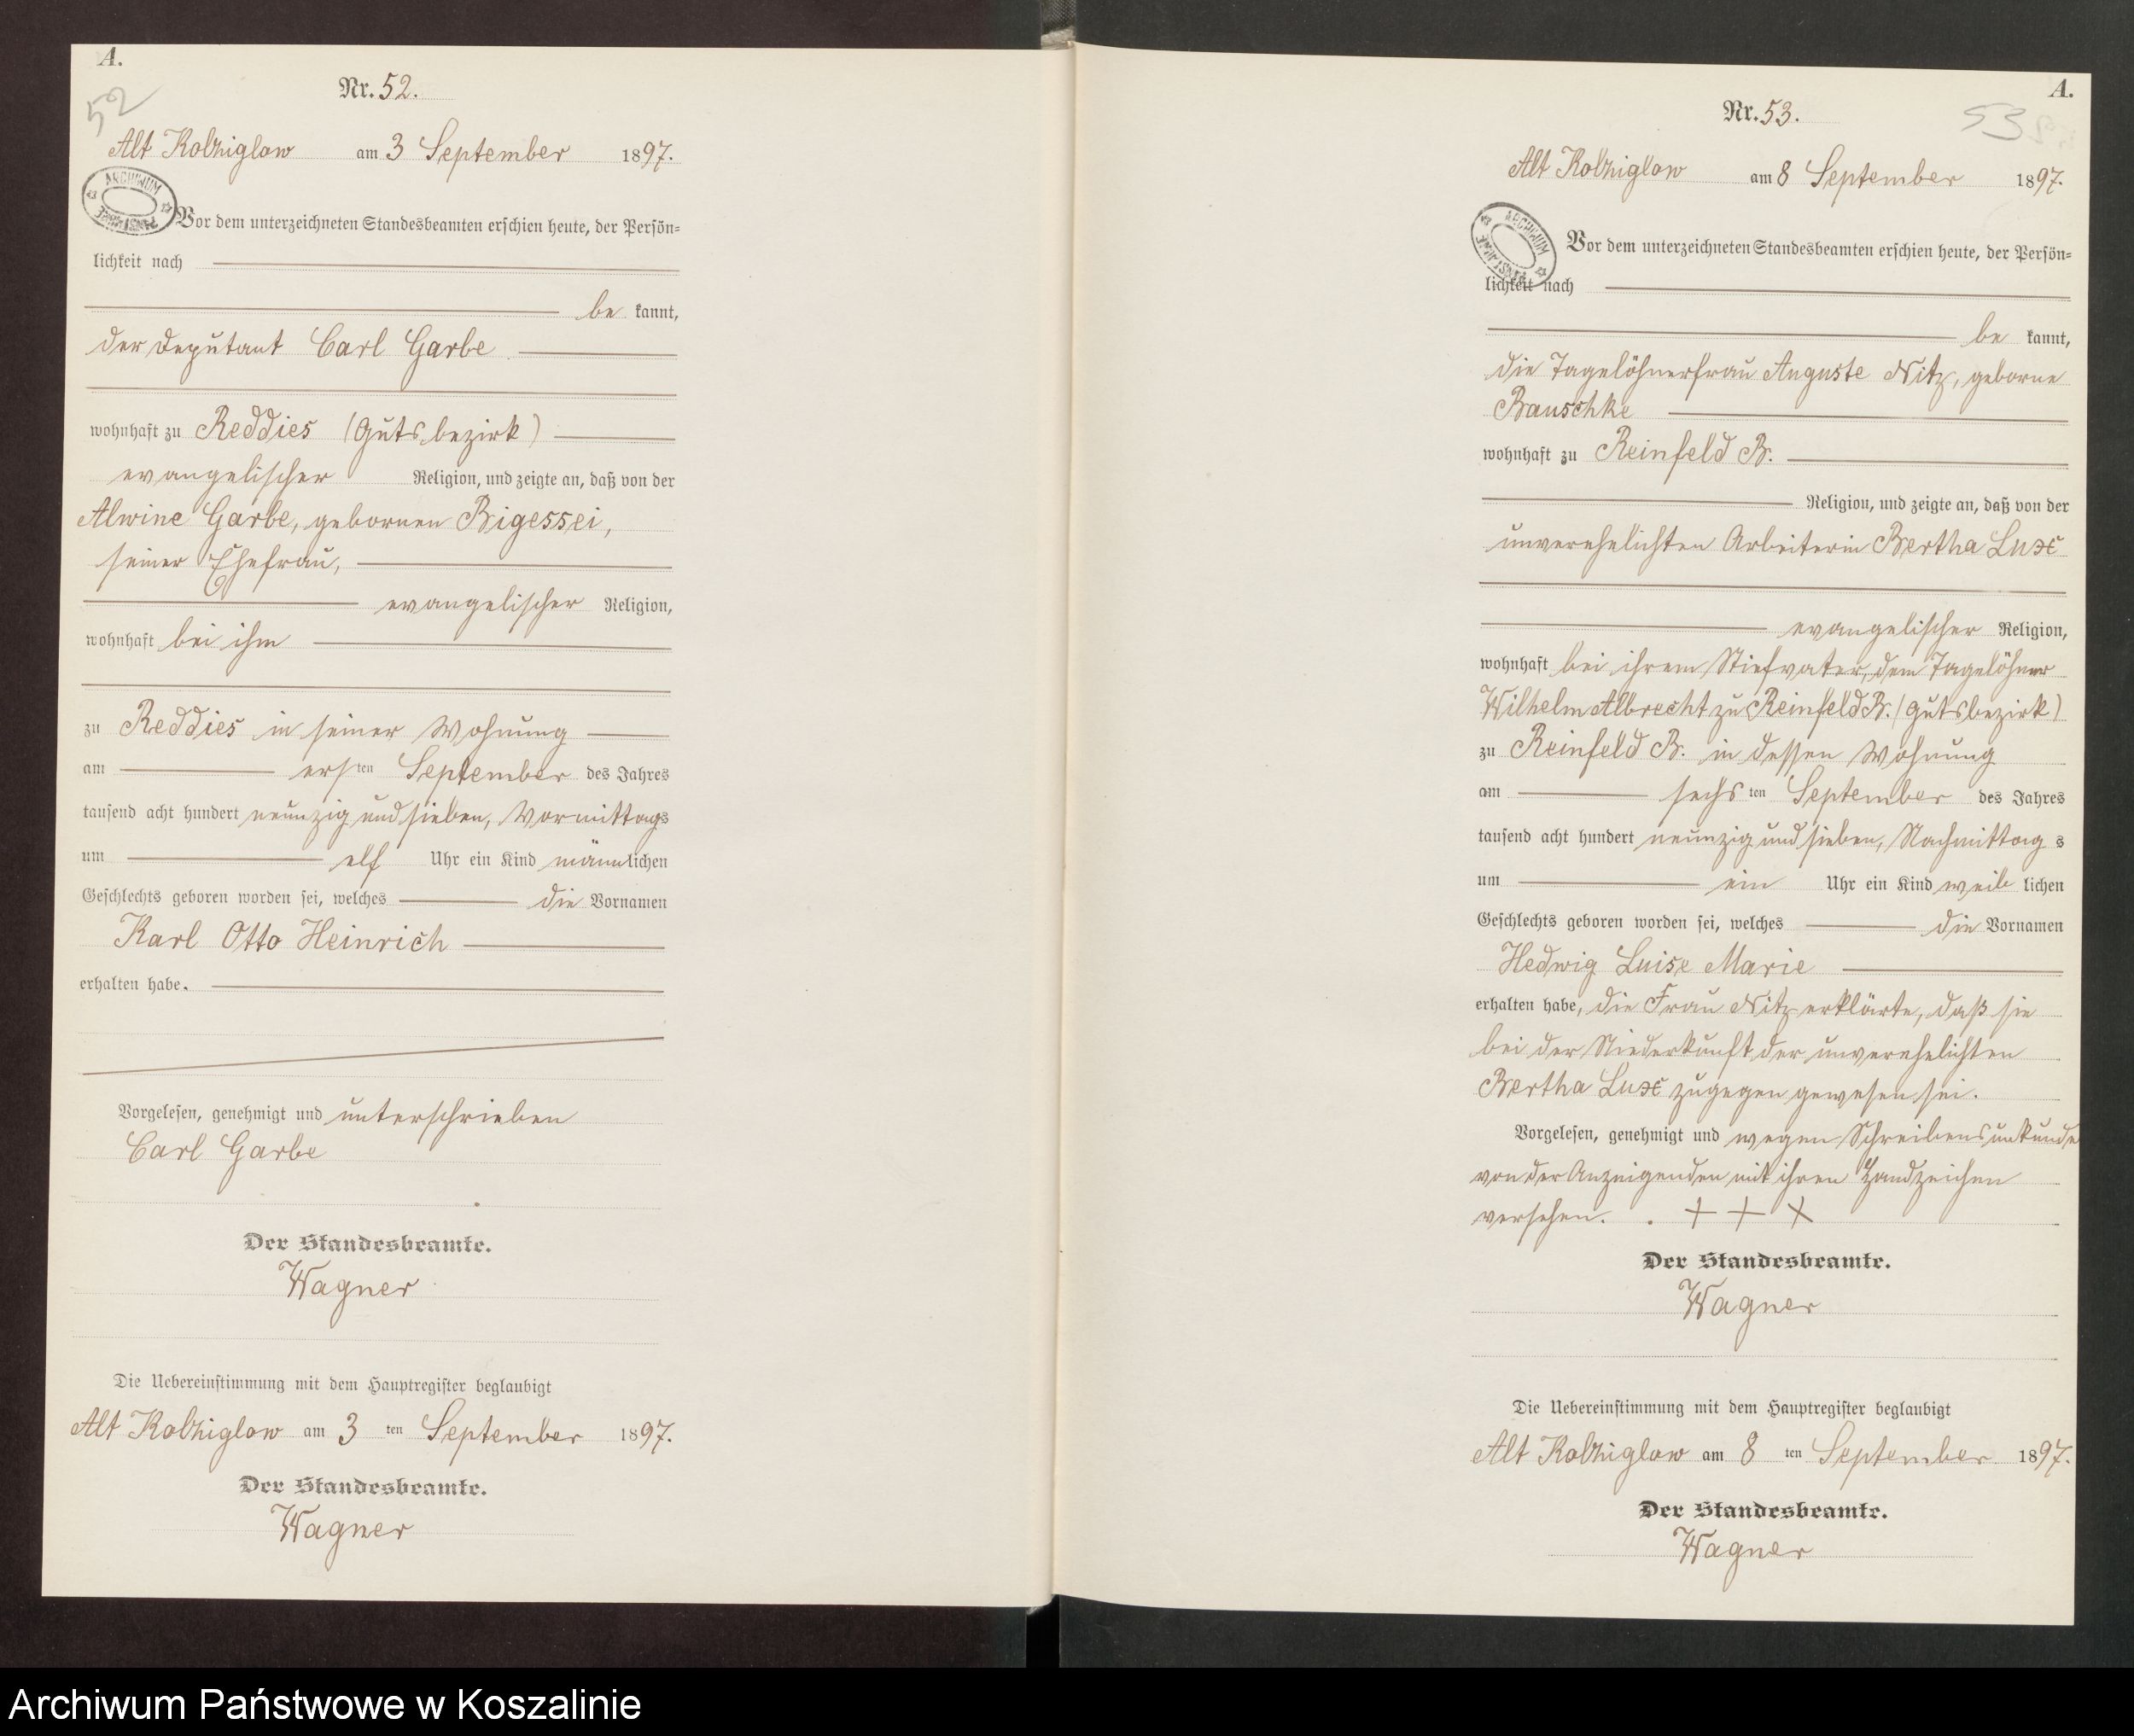 A.
Nr. 52.
52
Alt Kolziglow am 3 September 1897.
ARCHIWUM PAŃSTWOWE
Vor dem unterzeichneten Standesbeamten erschien heute, der Persön=
lichkeit nach
be kannt,
der Deputant Carl Garbe
wohnhaft zu Reddies (Gutsbezirk)
evangelischer Religion, und zeigte an, daß von der
Alwine Garbe, gebornen Bigessei,
seiner Ehefrau,
evangelischer Religion,
wohnhaft bei ihm
zu Reddies in seiner Wohnung
am ersten September des Jahres
tausend acht hundert neunzig und sieben, Vormittags
um elf Uhr ein Kind männlichen
Geschlechts geboren worden sei, welches die Vornamen
Karl Otto Heinrich
erhalten habe.
Vorgelesen, genehmigt und unterschrieben
Carl Garbe
Der Standesbeamte.
Wagner
Die Uebereinstimmung mit dem Hauptregister beglaubigt
Alt Kolziglow am 3 ten September 1897.
Der Standesbeamte.
Wagner
A.
Nr. 53.
53
Alt Kolziglow am 8 September 1897.
ARCHIWUM PAŃSTWOWE
Vor dem unterzeichneten Standesbeamten erschien heute, der Persön=
lichkeit nach
be kannt,
die Tagelöhnerfrau Auguste Nitz, geborne
Bauschke
wohnhaft zu Reinfeld B.
Religion, und zeigte an, daß von der
unverehelichten Arbeiterin Bertha Lux
evangelischer Religion,
wohnhaft bei ihrem Stiefvater, dem Tagelöhner
Wilhelm Albrecht zu Reinfeld B. (Gutsbezirk)
zu Reinfeld B. in dessen Wohnung
am sechs ten September des Jahres
tausend acht hundert neunzig und sieben, Nachmittag s
um ein Uhr ein Kind weib lichen
Geschlechts geboren worden sei, welches die Vornamen
Hedwig Luise Marie
erhalten habe, die Frau Nitz erklärte, daß sie
bei der Niederkunft der unverehelichten
Bertha Lux zugegen gewesen sei.
Vorgelesen, genehmigt und wegen Schreibensunkunde
von der Anzeigenden mit ihren Handzeichen
versehen. + + +
Der Standesbeamte.
Wagner
Die Uebereinstimmung mit dem Hauptregister beglaubigt
Alt Kolziglow am 8 ten September 1897.
Der Standesbeamte.
Wagner
Archiwum Państwowe w Koszalinie